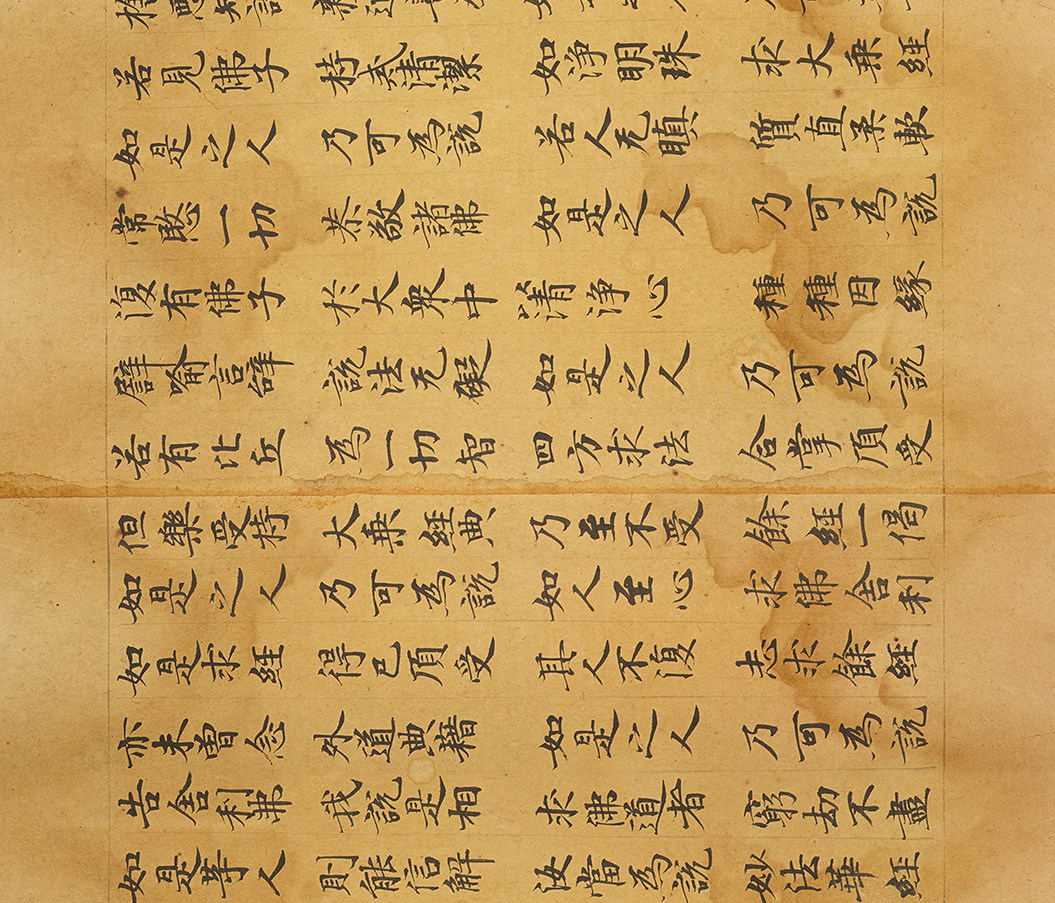 若見佛子 持戒清潔 如淨明珠 求大乘經
如是之人 乃可為說 若人无瞋 質直柔軟
常愍一切 恭敬諸佛 如是之人 乃可為說
復有佛子 於大衆中 以清淨心 種種因緣
譬喻言辝 說法无礙 如是之人 乃可為說
若有比丘 為一切智 四方求法 合掌頂受
但樂受持 大乘經典 乃至不受 餘經一偈
如是之人 乃可為說 如人至心 求佛舍利
如是求經 得已頂受 其人不復 志求餘經
亦未曾念 外道典藉 如是之人 乃可為說
告舍利佛 我說是相 求佛道者 窮劫不盡
如是等人 則能信解 汝當為說 妙法華經